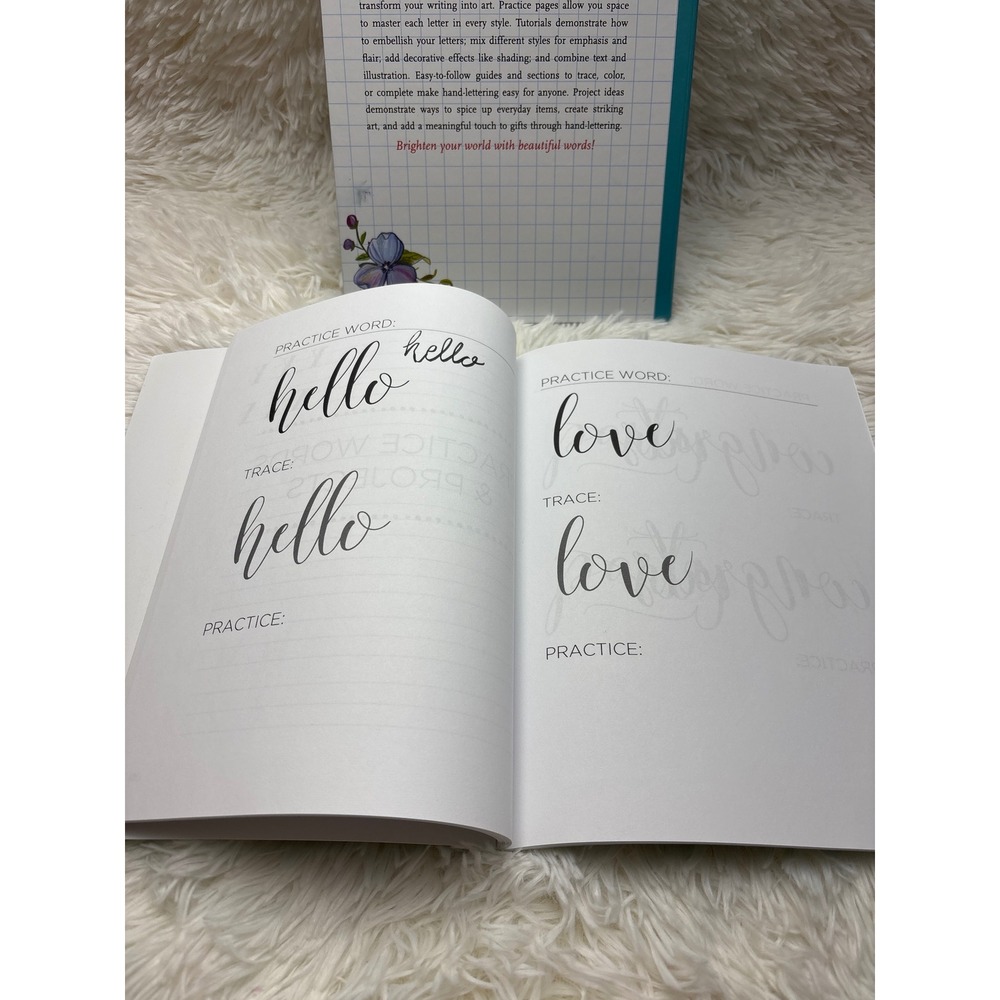 transform your writing into art. Practice pages allow you space
to master each letter in every style. Tutorials demonstrate how
to embellish your letters; mix different styles for emphasis and
flair; add decorative effects like shading; and combine text and
illustration. Easy-to-follow guides and sections to trace, color,
or complete make hand-lettering easy for anyone. Project ideas
demonstrate ways to spice up everyday items, create striking
art, and add a meaningful touch to gifts through hand-lettering.
Brighten your world with beautiful words!
PRACTICE WORD:
hello hello
TRACE:
hello
PRACTICE:
PRACTICE WORD:
love
TRACE:
love
PRACTICE: